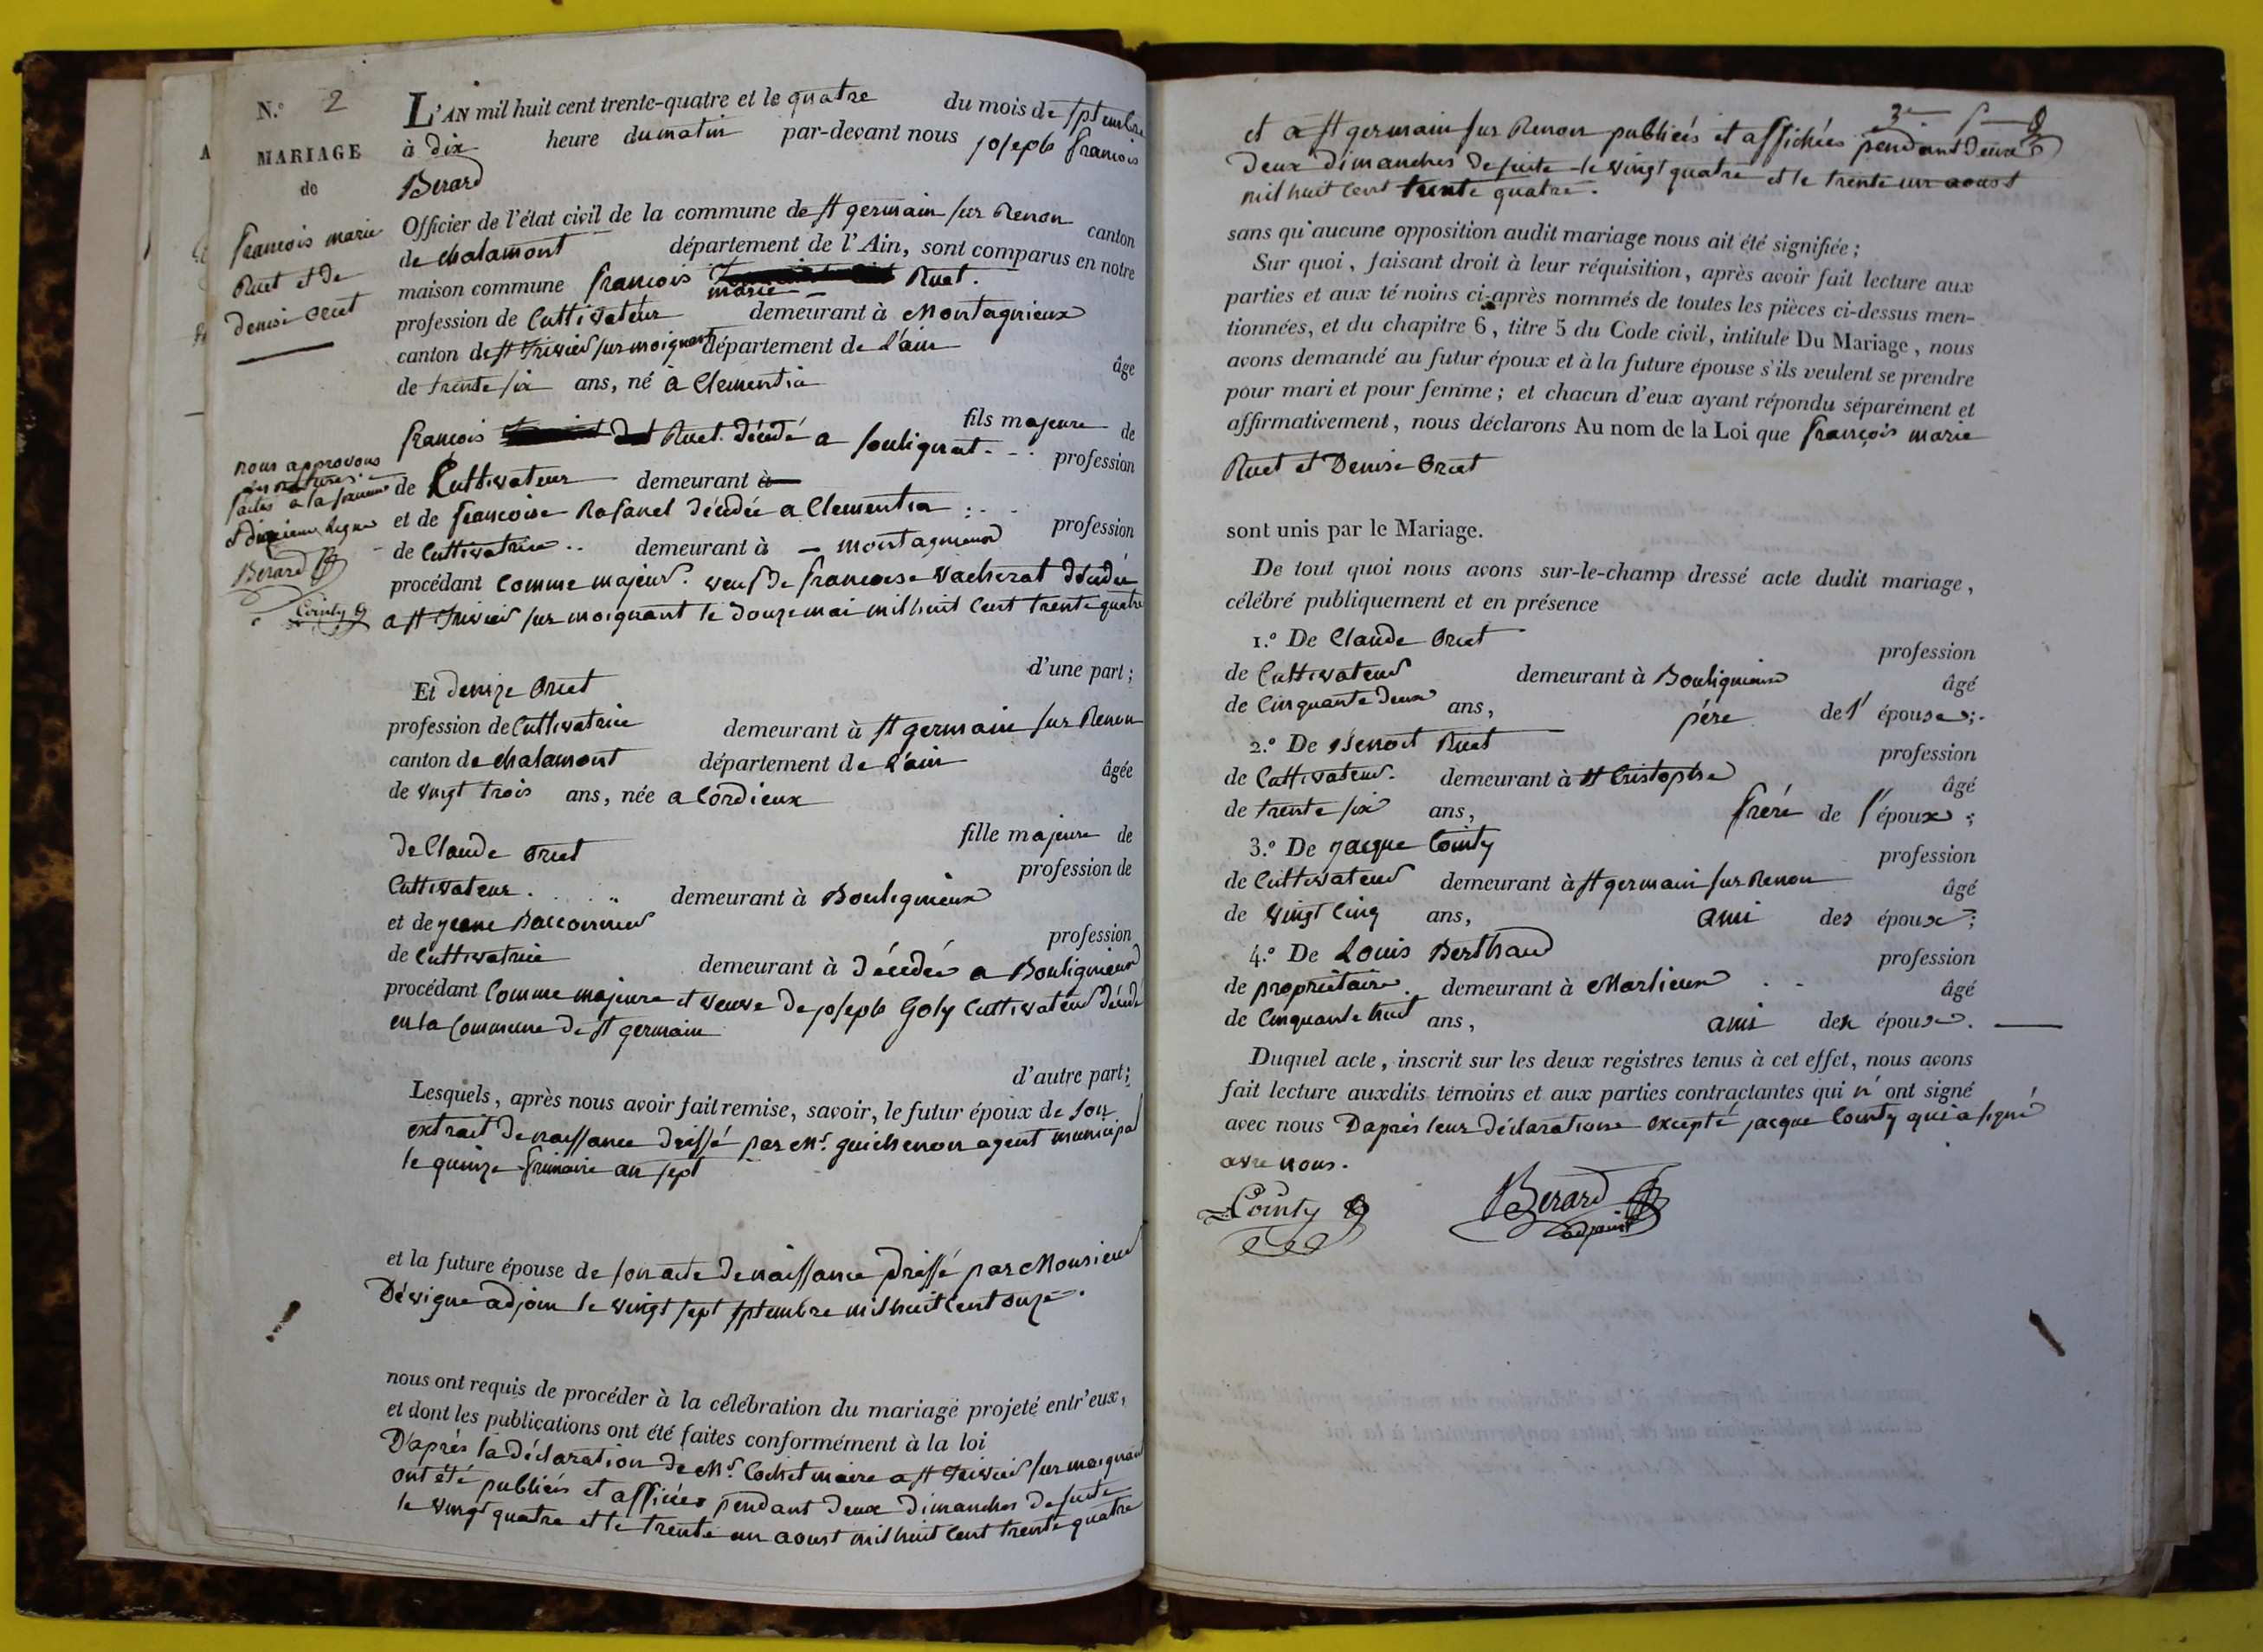 N.º 2
MARIAGE
de
francois marie
Ruet et de
denise Oriet
L'AN mil huit cent trente-quatre et le quatre du mois de Septembre
à dix heure du matin par-devant nous joseph francois
Berard
Officier de l'état civil de la commune de St germain sur Renon canton
de chalamont département de l'Ain, sont comparus en notre
maison commune françois marie Ruet.
profession de Cultivateur demeurant à Montagnieux
canton de St Trivier sur moignant département de L'ain
âgé
de trente six ans, né à Clementia
fils majeure de
françois Ruet décédé a Soulignat profession
de Cultivateur demeurant à
et de francoise Rafanel décédée a Clementia
profession
de Cultivatrice .. demeurant à – montagnieux
procédant Comme majeur. veuf de francoise Vacherat décédée
a St Trivier sur moignant le douze mai mil huit Cent trente quatre
nous approvons
faites a la
et dixieme ligne
Berard
Cointy
d'une part ;
Et denize Oriet
profession de Cultivatrice demeurant à St germain sur Renon
canton de chalamont département de L'ain
âgée
de vingt trois ans, née a Cordieux
fille majeure de
de Claude Oriet
profession de
Cultivateur . demeurant à Bouligneux
et de jeane
profession
de Cultivatrice demeurant à décédée a Bouligneux
procédant Comme majeure et veuve de joseph Goly Cultivateur décédé
en la Commune de St germain
d'autre part ;
Lesquels, après nous avoir fait remise, savoir, le futur époux de son
extrait de naissance dressé par Mr. guichenon agent municipal
le quinze frimaire an sept
et la future épouse de son acte de naissance dressé par Monsieur
Dévigne adjoin le vingt sept septembre mil huit Cent onze.
nous ont requis de procéder à la célébration du mariage projeté entr'eux,
et dont les publications ont été faites conformément à la loi
D'aprés la déclaration de Mr. Cochet maire a St Trivier sur moignant
ont été publiées et affiiées pendant deux dimanches de suite
le vingt quatre et le trente un aoust mil huit Cent trente quatre
et a St germain sur Renon publiées et affichées pendant deux
deux dimanches de suite le vingt quatre et le trente un aoust
mil huit Cent trente quatre.
sans qu'aucune opposition audit mariage nous ait été signifiée ;
Sur quoi, faisant droit à leur réquisition, après avoir fait lecture aux
parties et aux témoins ci-après nommés de toutes les pièces ci-dessus men-
tionnées, et du chapitre 6, titre 5 du Code civil, intitulé Du Mariage, nous
avons demandé au futur époux et à la future épouse s'ils veulent se prendre
pour mari et pour femme ; et chacun d'eux ayant répondu séparément et
affirmativement, nous déclarons Au nom de la Loi que françois marie
Ruet et Denise Oriet
sont unis par le Mariage.
De tout quoi nous avons sur-le-champ dressé acte dudit mariage,
célébré publiquement et en présence
1.º De Claude Oriet
profession
de Cultivateur demeurant à Bouligneux
âgé
de Cinquante deux ans, pére de l' épouse ;
2.º De Benoit Ruet
profession
de Cultivateur. demeurant à St Cristophe
âgé
de trente six ans, frére de l'époux ;
3.º De jacque Cointy
profession
de Cultivateur demeurant à St germain sur Renon
âgé
de vingt Cinq ans, ami des époux ;
4.º De Louis Berthaud
profession
de propriétaire. demeurant à Marlieux
âgé
de Cinquante huit ans, ami des époux.
Duquel acte, inscrit sur les deux registres tenus à cet effet, nous avons
fait lecture auxdits témoins et aux parties contractantes qui n' ont signé
avec nous Daprès leur déclaration excepté jacque Cointy qui a signé
avec nous.
Cointy Berard
adjoint